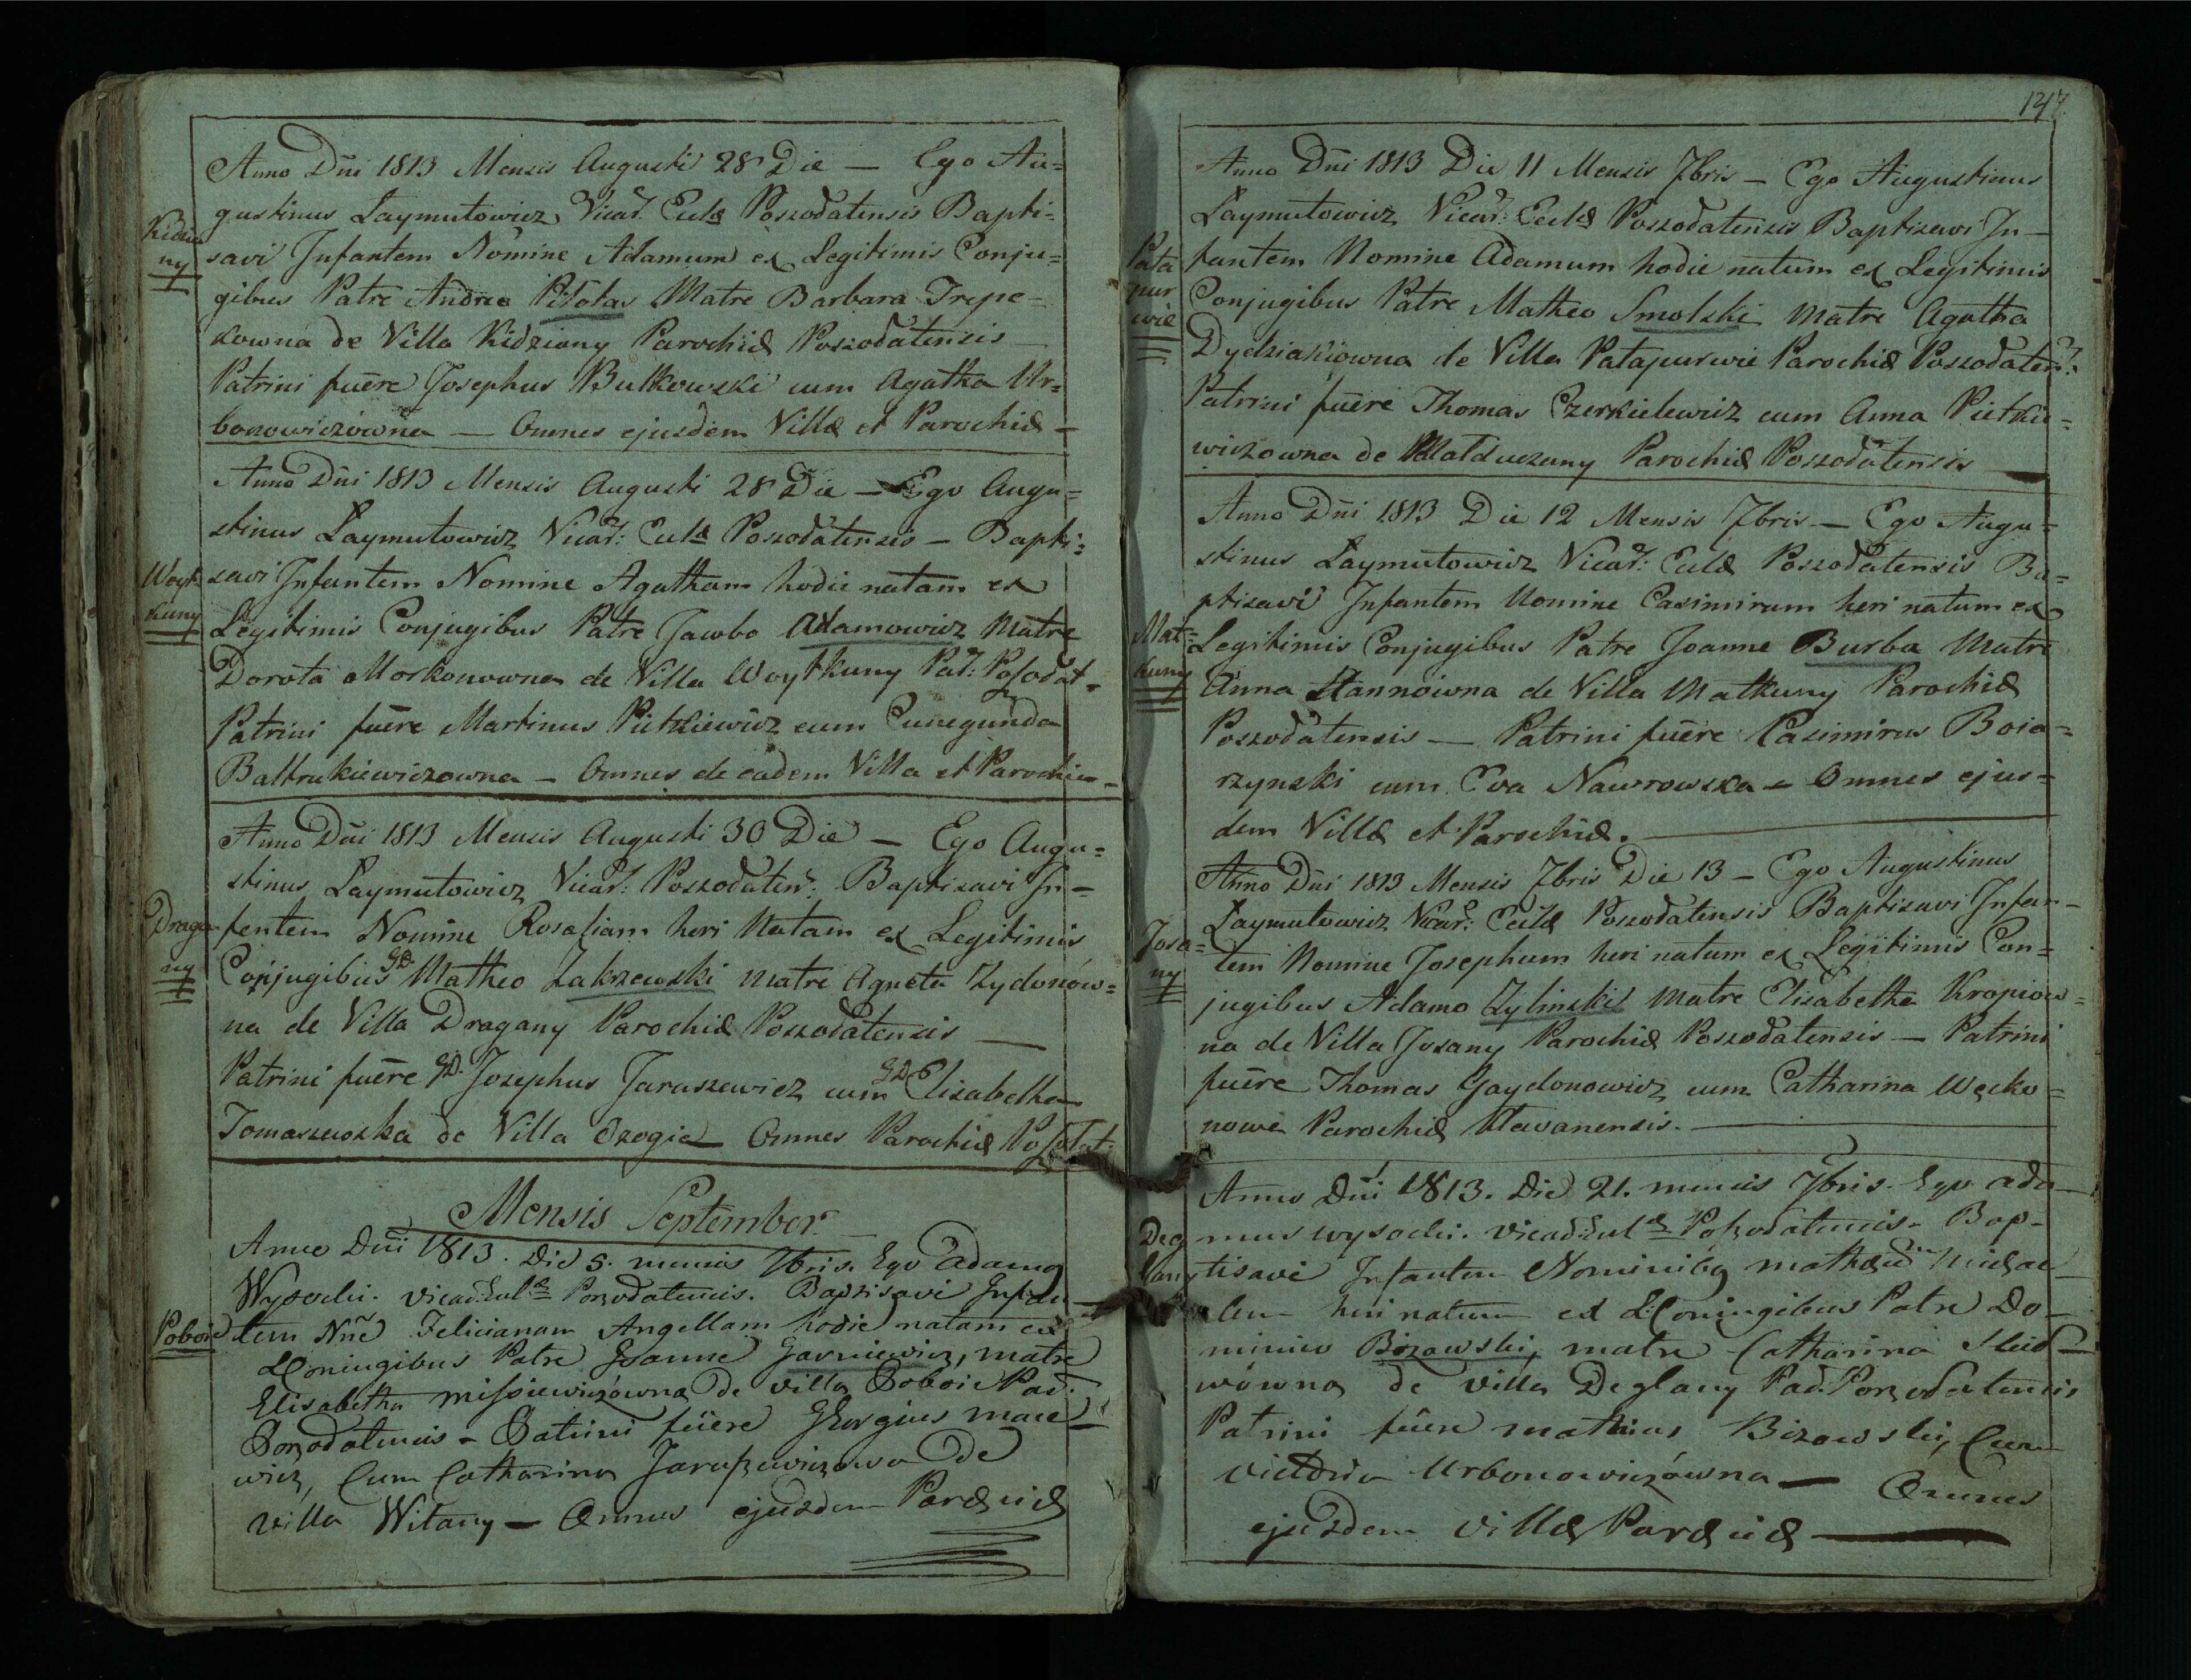 Anno Dñi 1813 Mensis Augusti 28 Die — Ego Au=
gustinus Laymutowicz Vicar: Eccłæ Poszodatensis Bapti=
Kidzia
ny
savi Infantem Nomine Adamum ex Legitimis Conju=
gibus Patre Andrea Matre Barbara Trepe=
kowna de Villa Kidziany Parochiæ Poszodatensis
Patrini fuere Josephus Butkowski cum Agatha Ur=
bonowiczówna — Omnes ejusdem Villæ et Parochiæ —
Anno Dñi 1813 Mensis Augusti 28 Die — Ego Augu=
stinus Laymutowicz Vicar: Eccłæ Poszodatensis — Bapti=
Woyt
kuny
zavi Infantem Nomine Agatham hodie natam ex
Legitimis Conjugibus Patre Jacobo Adamowicz Matre
Dorota Morkonowna de Villa Woytkuny Par: Poszodat=
Patrini fuere Martinus Pietkiewicz cum Cunegunda
Baltrukiewiczowna — Omnes de eadem Villa et Parochia —
Anno Dñi 1813 Mensis Augusti 30 Die — Ego Augu=
stinus Laymutowicz Vicar: Poszodaten: Baptizavi In=
Draga
ny
fantem Nomine Rosaliam heri Natam ex Legitimis
Conjugibus GD Matheo Zakrzewski Matre Agneta Zydonów=
na de Villa Dragany Parochiæ Poszodatensis —
Patrini fuere GD. Josephus Jaraszewicz cum GD Elisabetha
Tomaszewska de Villa Ozogia Omnes Parochiæ Poszodat:
Mensis September
Anno Dñi 1813. Die 5. mensis 7bris. Ego Adamus
Wysocki. Vicar: Eccłæ Poszodatensis. Baptisavi Infan
Poboie
tem Nñe Felicianam Angellam hodie natam ex
L Coniugibus Patre Joanne Jarniewicz, matre
Elisabetha Misiewiczówna De villa Poboie Par:
Poszodatensis — Patrini fuere Georgius mace
wicz, Cum Catharina Jaruszewiczowa De
villa Witany — Omnes ejusdem Paræciæ
147
Anno Dñi 1813 Die 11 Mensis 7bris — Ego Augustinus
Laymutowicz Vicar: Eccłæ Poszodatensis Baptizavi In—
Pata
pur
wie
fantem Nomine Adamum hodie natum ex Legitimis
Conjugibus Patre Matheo Smolski Matre Agatha
Dydziakiowna de Villa Patapurwie Parochiæ Poszodaten:
Patrini fuere Thomas Czerkielewicz cum Anna Pietkie=
wiczowna de Parochiæ Poszodatensis
Anno Dñi 1813 Die 12 Mensis 7bris — Ego Augu=
stinus Laymutowicz Vicar: Eccłæ Poszodatensis Ba=
ptizavi Infantem Nomine Casimirum heri natum ex
Mat=
kuny
Legitimis Conjugibus Patre Joanne Burba Matre
Anna Stannówna de Villa Matkuny Parochiæ
Poszodatensis — Patrini fuere Casimirus Boia=
rzynski cum Eva Nawrowska — Omnes ejus=
dem Villæ et Parochiæ.
Anno Dñi 1813 Mensis 7bris Die 13 — Ego Augustinus
Laymutowicz Vicar: Eccłæ Poszodatensis Baptizavi Infan—
Josa=
ny
tem Nomine Josephum heri natum ex Legitimis Con=
jugibus Adamo Zylinski Matre Elisabetha Kropiow=
na de Villa Josany Parochiæ Poszodatensis — Patrini
fuere Thomas Gaydonowicz cum Catharina Węcko=
nowa Parochiæ
Anno Dñi 1813. Die 21. mensis 7bris. Ego Ada—
mus wysocki. Vicar: Eccłæ Poszodatensis — Bap—
Deg
lany
tisavi Infantem Nominibg mathæum Michae
lem heri natum ex L: Coniugibus Patre Do—
minico Bizowski, matre Catharina
wówna, de villa Deglany Par: Poszodatensis
Patrini fuere mathias Bizowski, Cum
Urbonowiczówna — Omnes
ejusdem Villæ Paræciæ —